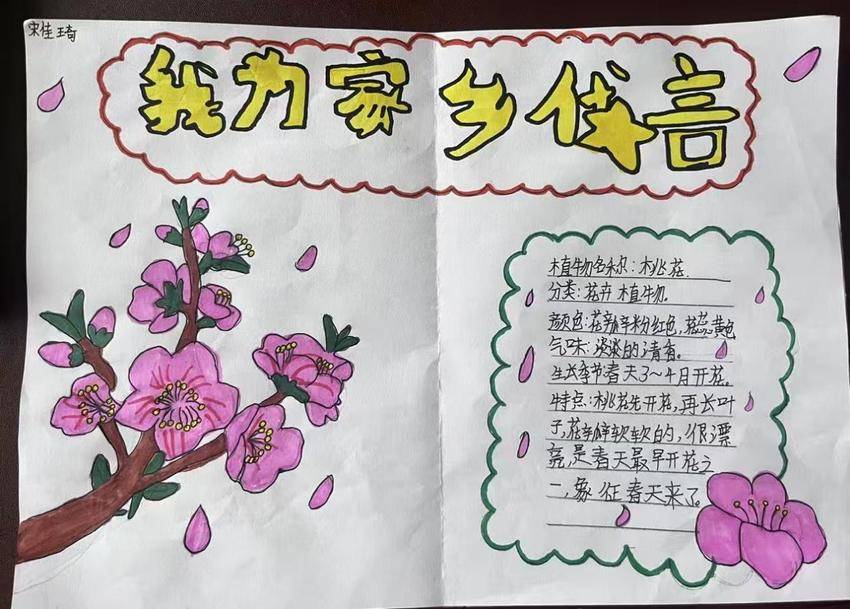 宋佳琦
我为家乡代言
植物名称：桃花.
分类：花卉植物.
颜色：花瓣粉红色，花蕊黄色
气味：淡淡的清香。
生长季节春天3～4月开花.
特点：桃花先开花，再长叶
子，花瓣软软的，很漂
亮，是春天最早开花之
一，象征春天来了。